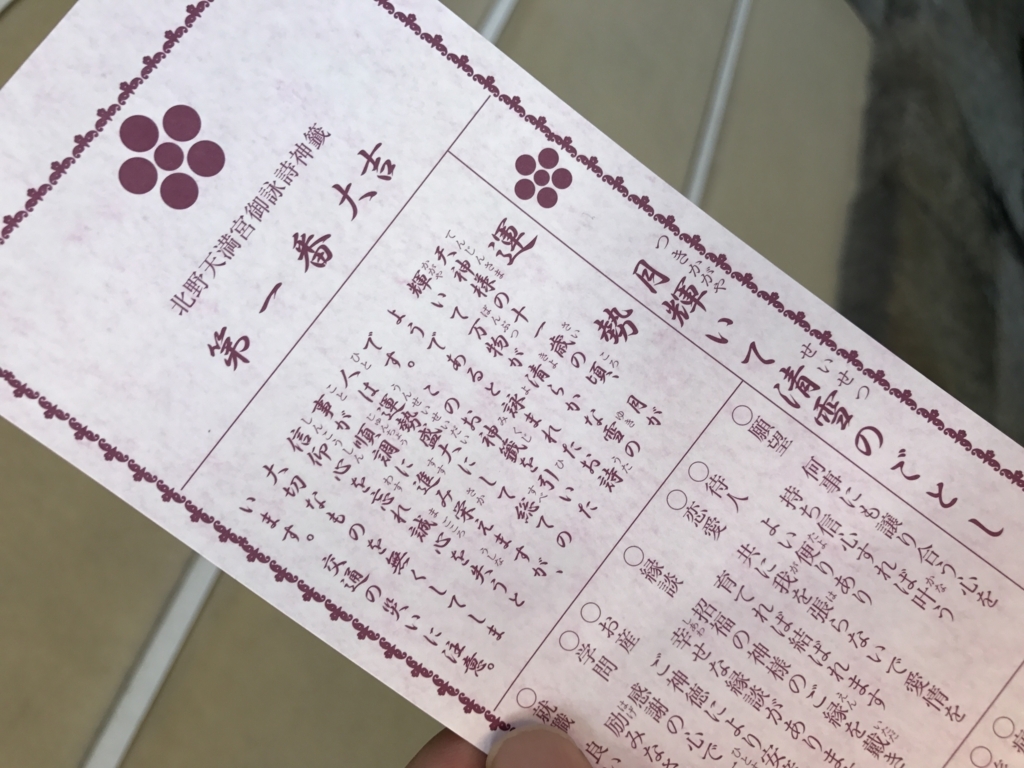 北野天満宮御詠詩神籤
第一番 大吉
月輝いて清雪のごとし
運勢
天神様の十一歳の頃 月が
輝いて万物が清らかな雪の
ようであると詠まれたお詩
です。このお神籤を引いた
人は運勢盛大にして総ての
事が順調に進み栄えますが、
信仰心を忘れ誠心を失うと
大切なものを無くしてしま
います。交通の災いに注意。
○願望 何事にも譲り合う心を
持ち信心すれば叶う
○待人 よい便りあり
○恋愛 共に我を張らないで愛情を
育てれば結ばれます
○縁談 招福の神様のご縁を戴き
幸せな縁談があります
○お産 ご神徳により安
○学問 感謝の心で
励みな
○就職 良い